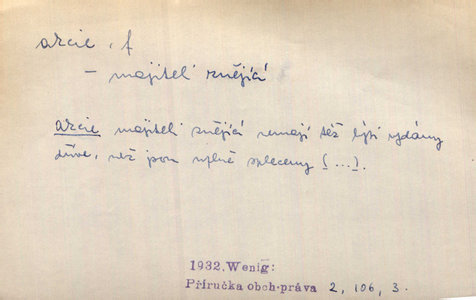 akcie, f
– majiteli znějící
akcie majiteli znějící nemají též býti vydány
dříve, než jsou úplně splaceny (...).
1932.Wenig:
Příručka obch.práva 2, 106, 3.